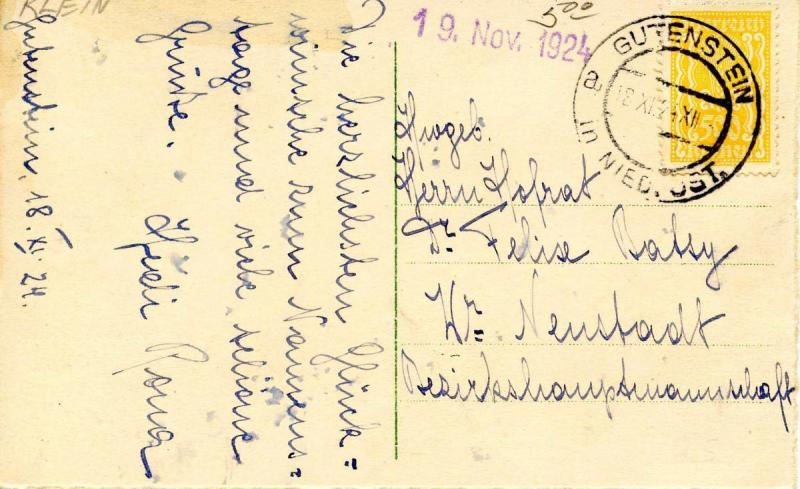 KLEIN
Gutenstein, 18. XI. 24.
Die herzlichsten Glück=
wünsche zum Namens=
tage und viele schöne
Grüße.
Hedi Rona
500
19. Nov. 1924
GUTENSTEIN
a
in NIED. ÖST.
500
Hwgeb.
Herrn Hofrat
Dr. Felix Batsy
Wr. Neustadt
Bezirkshauptmannschaft